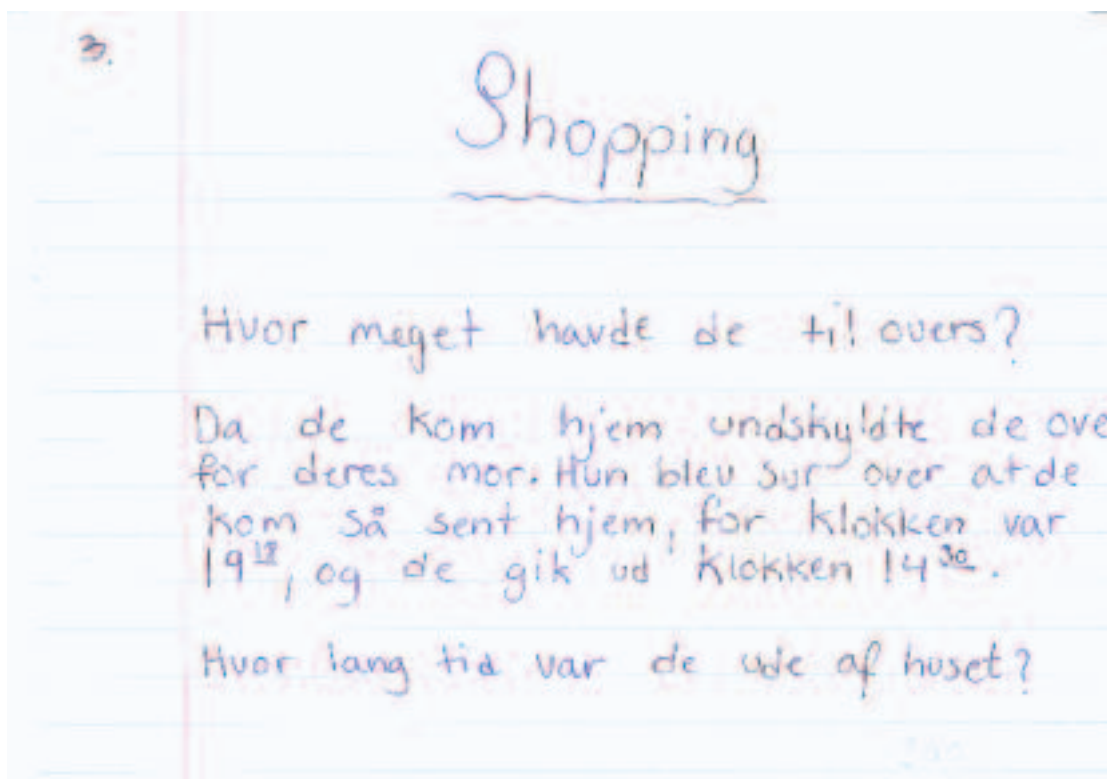 3.
Shopping
Hvor meget havde de til overs?
Da de kom hjem undskyldte de ove
for deres mor. Hun blev sur over at de
kom så sent hjem, for klokken var
19¹⁸, og de gik ud klokken 14³⁰.
Hvor lang tid var de ude af huset?